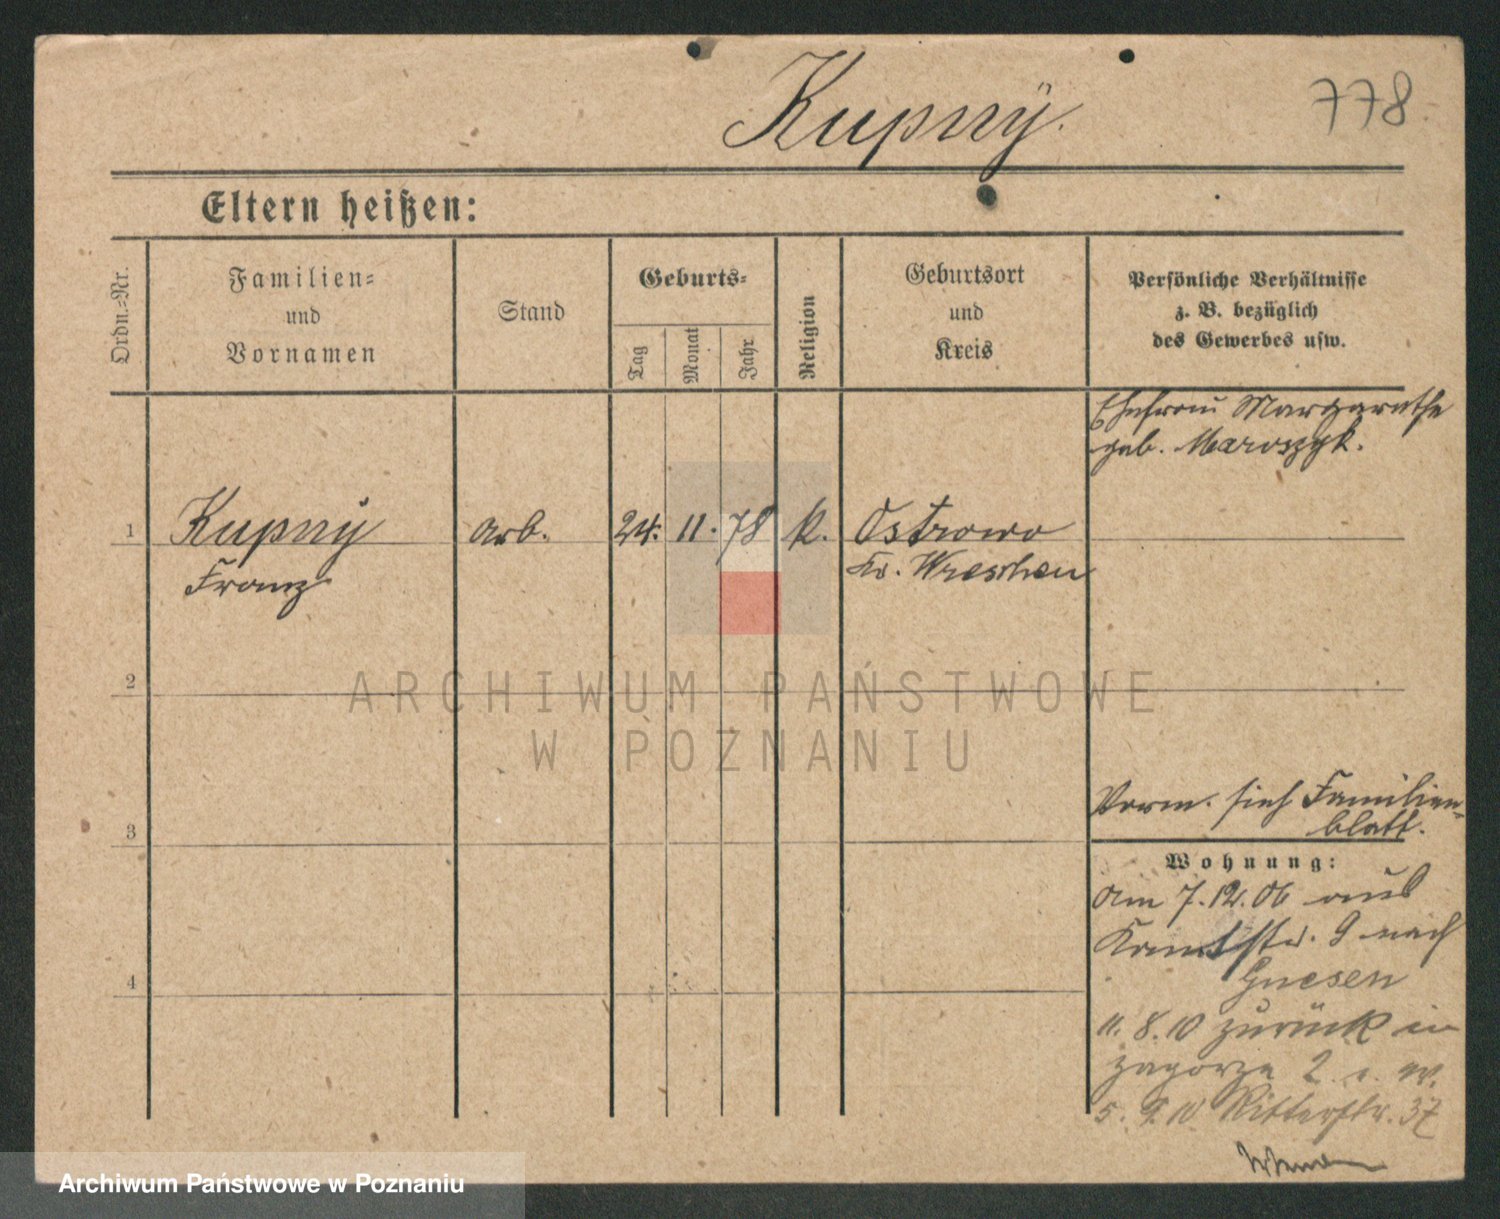 Kupnÿ.
778
Eltern heißen:
Ordn.-Nr.
Familien-
und
Vornamen
Stand
Geburts-
Tag
Monat
Jahr
Religion
Geburtsort
und
Kreis
Persönliche Verhältnisse
z. B. bezüglich
des Gewerbes usw.
Ehefrau Margarethe
geb. Maroszyk.
1
Kupny
Franz
Arb.
24. 11. 78
k.
Ostrowo
Kr. Wreschen
2
ARCHIWUM PAŃSTWOWE
W POZNANIU
3
Verm. sieh Familien-
blatt.
Wohnung:
Am 7.12.06 aus
Kantstr. 9 nach
Gnesen
4
11. 8.10 zurück in
Zagorze 2
5. 9.10 Ritterstr. 37
Archiwum Państwowe w Poznaniu